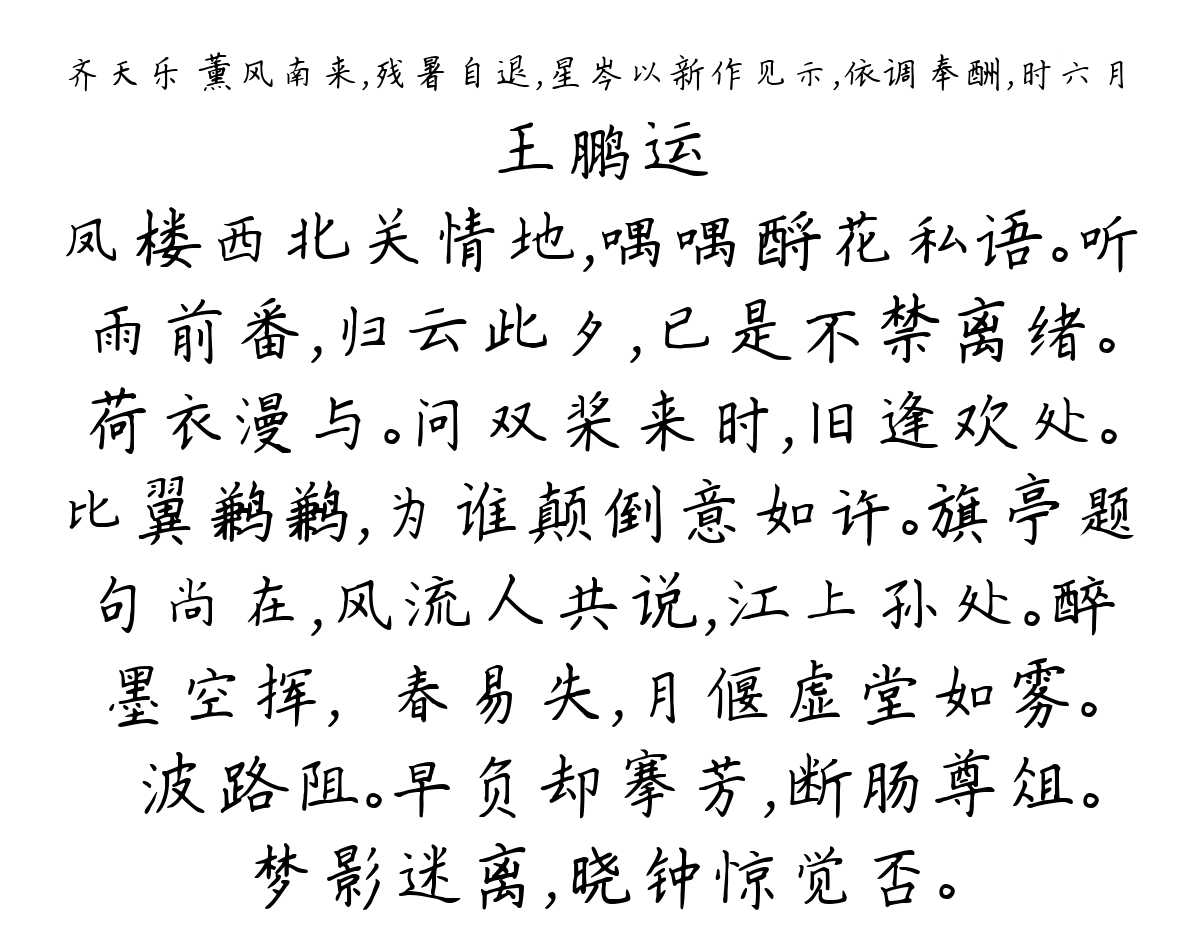 齐天乐 薰风南来,残暑自退,星岑以新作见示,依调奉酬,时六月
王鹏运
凤楼西北关情地,喁喁酹花私语。听
雨前番,归云此夕,已是不禁离绪。
荷衣漫与。问双桨来时,旧逢欢处。
比翼鹣鹣,为谁颠倒意如许。旗亭题
句尚在,风流人共说,江上孙处。醉
墨空挥, 春易失,月偃虚堂如雾。
波路阻。早负却搴芳,断肠尊俎。
梦影迷离,晓钟惊觉否。